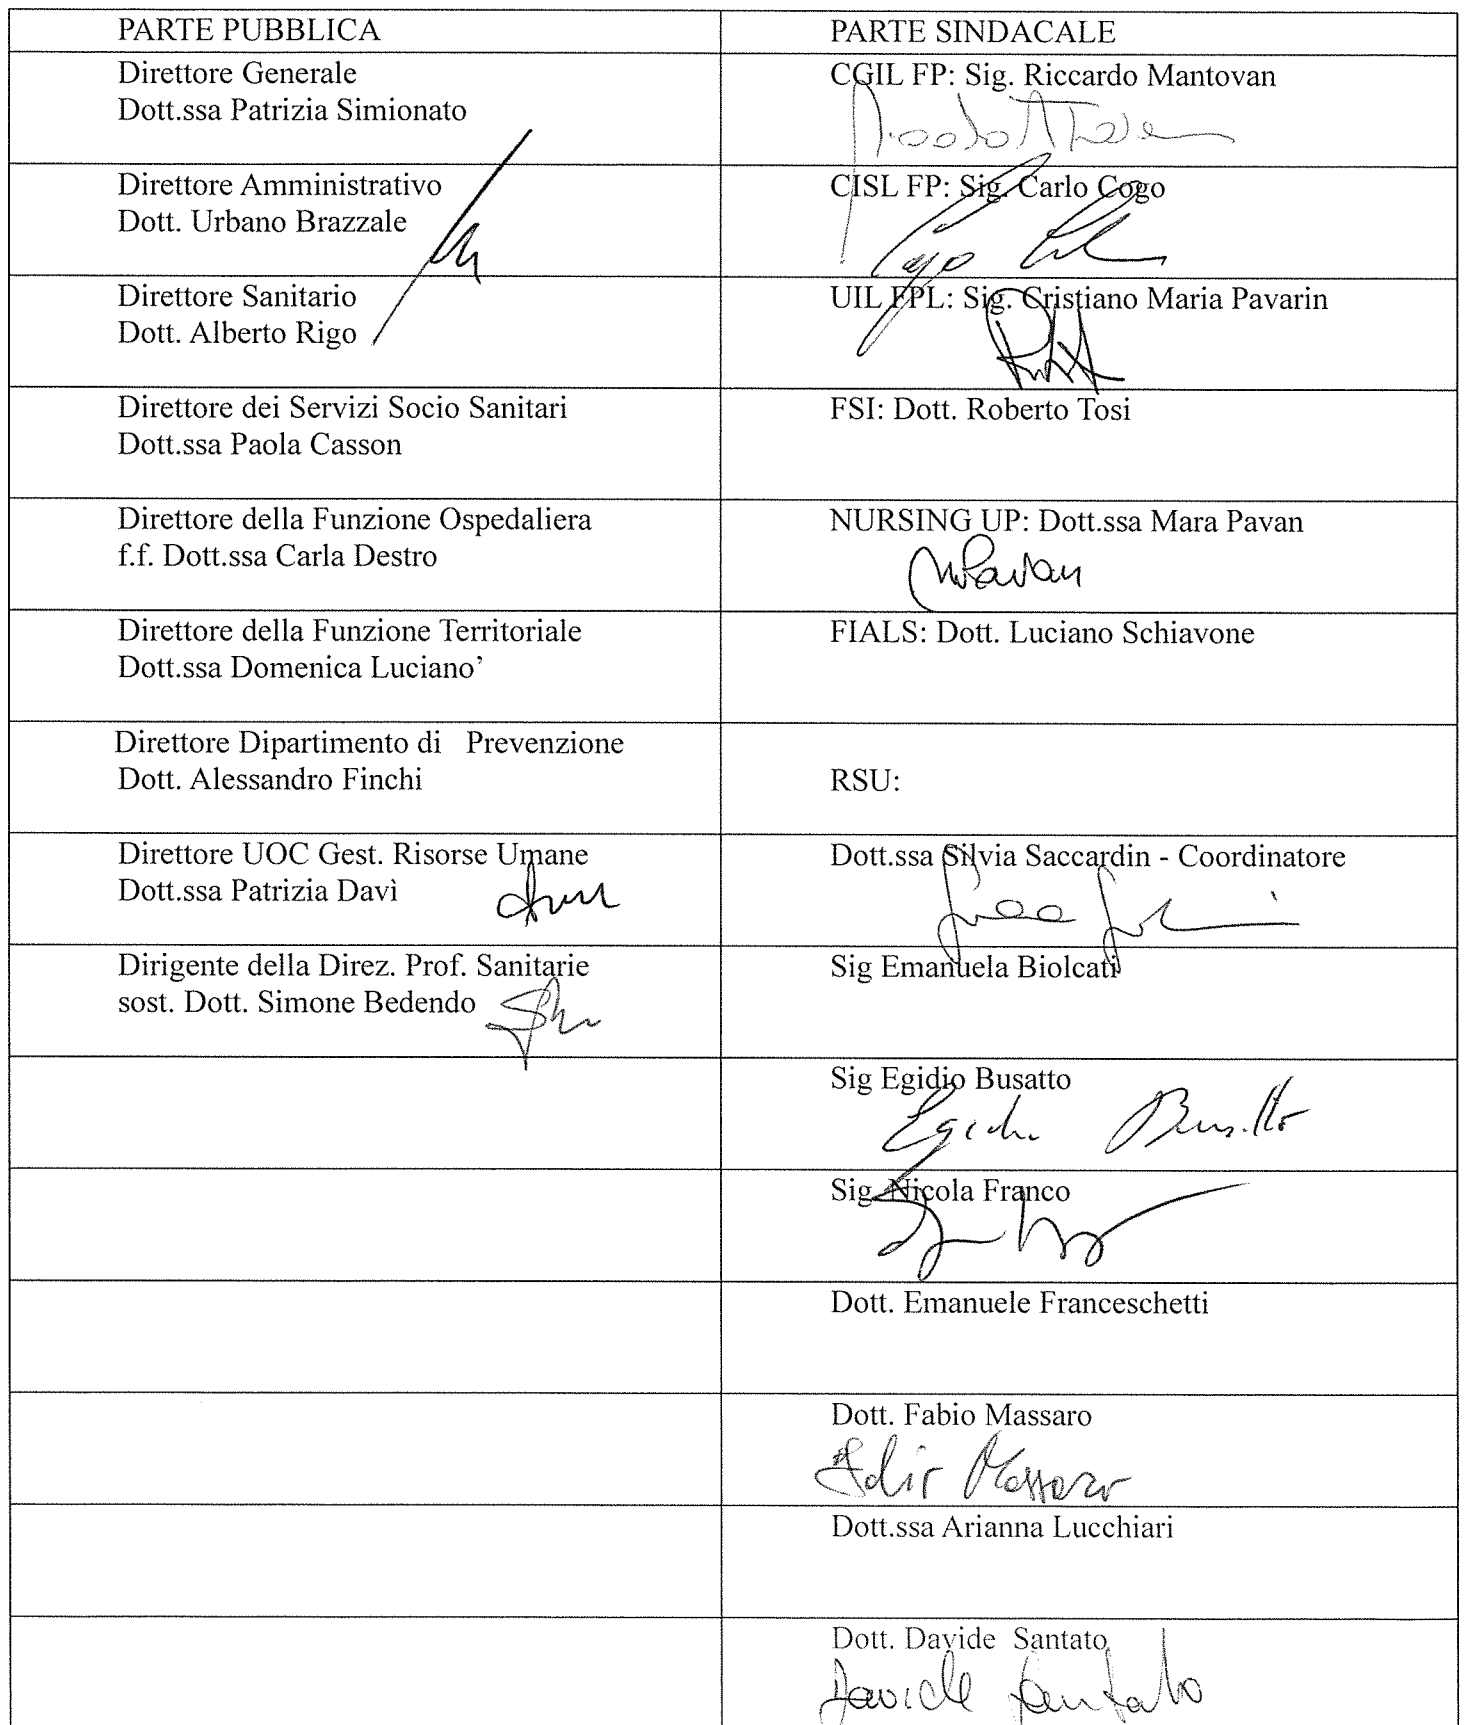 PARTE PUBBLICA
PARTE SINDACALE
Direttore Generale
Dott.ssa Patrizia Simionato
CGIL FP: Sig. Riccardo Mantovan
Direttore Amministrativo
Dott. Urbano Brazzale
CISL FP: Sig. Carlo Cogo
Cogo
Direttore Sanitario
Dott. Alberto Rigo
UIL FPL: Sig. Cristiano Maria Pavarin
Direttore dei Servizi Socio Sanitari
Dott.ssa Paola Casson
FSI: Dott. Roberto Tosi
Direttore della Funzione Ospedaliera
f.f. Dott.ssa Carla Destro
NURSING UP: Dott.ssa Mara Pavan
MPavan
Direttore della Funzione Territoriale
Dott.ssa Domenica Luciano’
FIALS: Dott. Luciano Schiavone
Direttore Dipartimento di Prevenzione
Dott. Alessandro Finchi
RSU:
Direttore UOC Gest. Risorse Umane
Dott.ssa Patrizia Davì
Dott.ssa Silvia Saccardin - Coordinatore
Dirigente della Direz. Prof. Sanitarie
sost. Dott. Simone Bedendo
Sig Emanuela Biolcati
Sig Egidio Busatto
Egidio Busatto
Sig. Nicola Franco
Dott. Emanuele Franceschetti
Dott. Fabio Massaro
Fabio Massaro
Dott.ssa Arianna Lucchiari
Dott. Davide Santato
Davide Santato